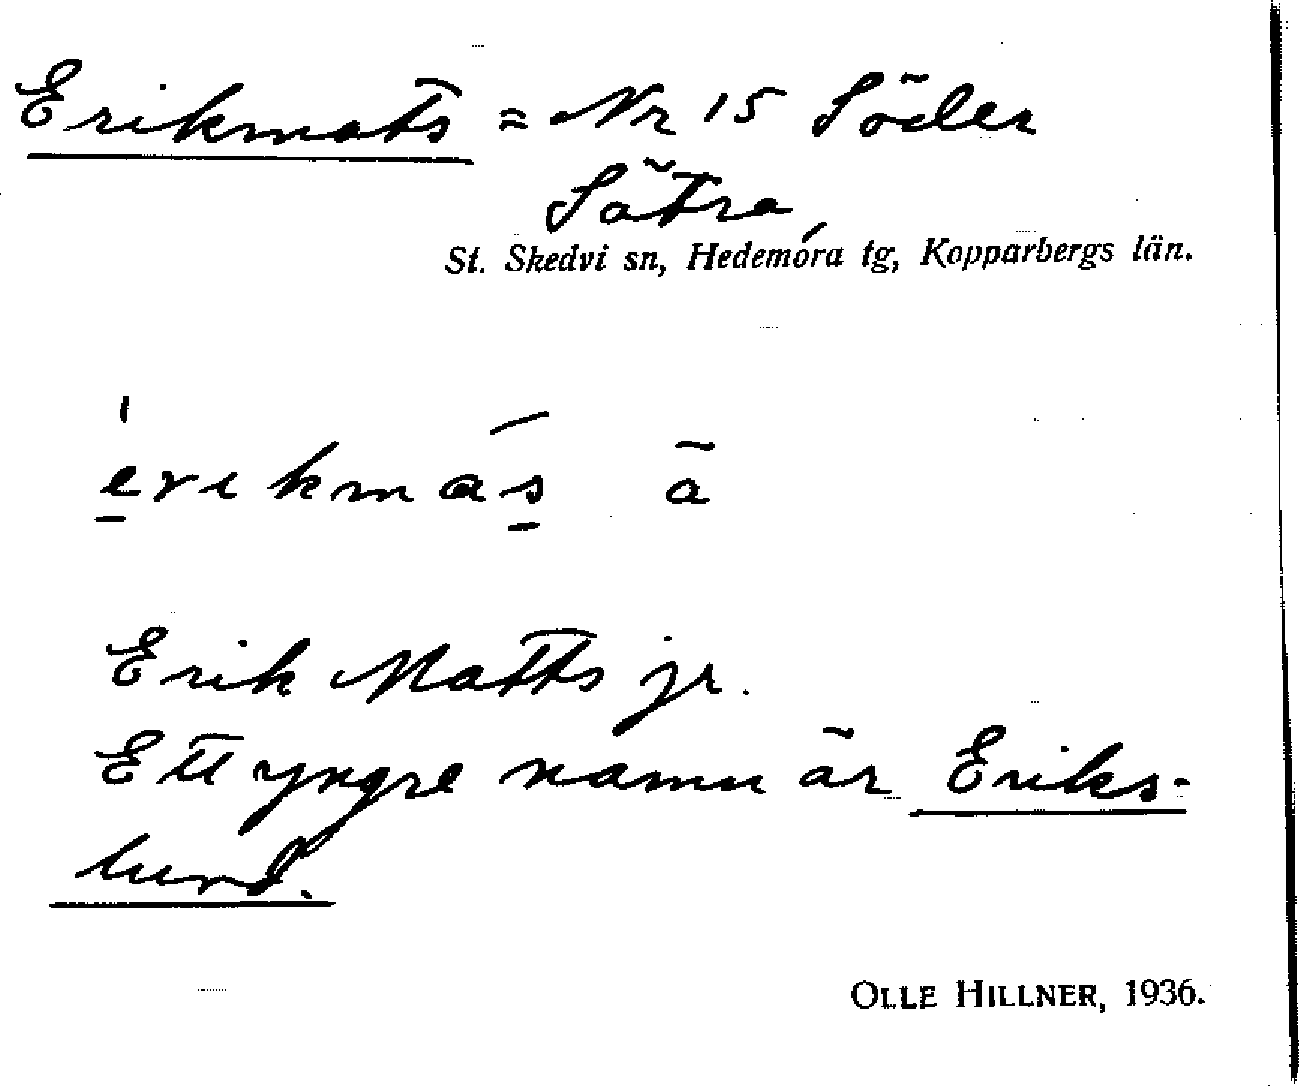 Erikmats = Nr 15 Söder
Sätra,
St. Skedvi sn, Hedemora tg, Kopparbergs län.
erikmas ā
Erik Matts jr.
Ett yngre namn är Eriks-
lund.
OLLE HILLNER, 1936.